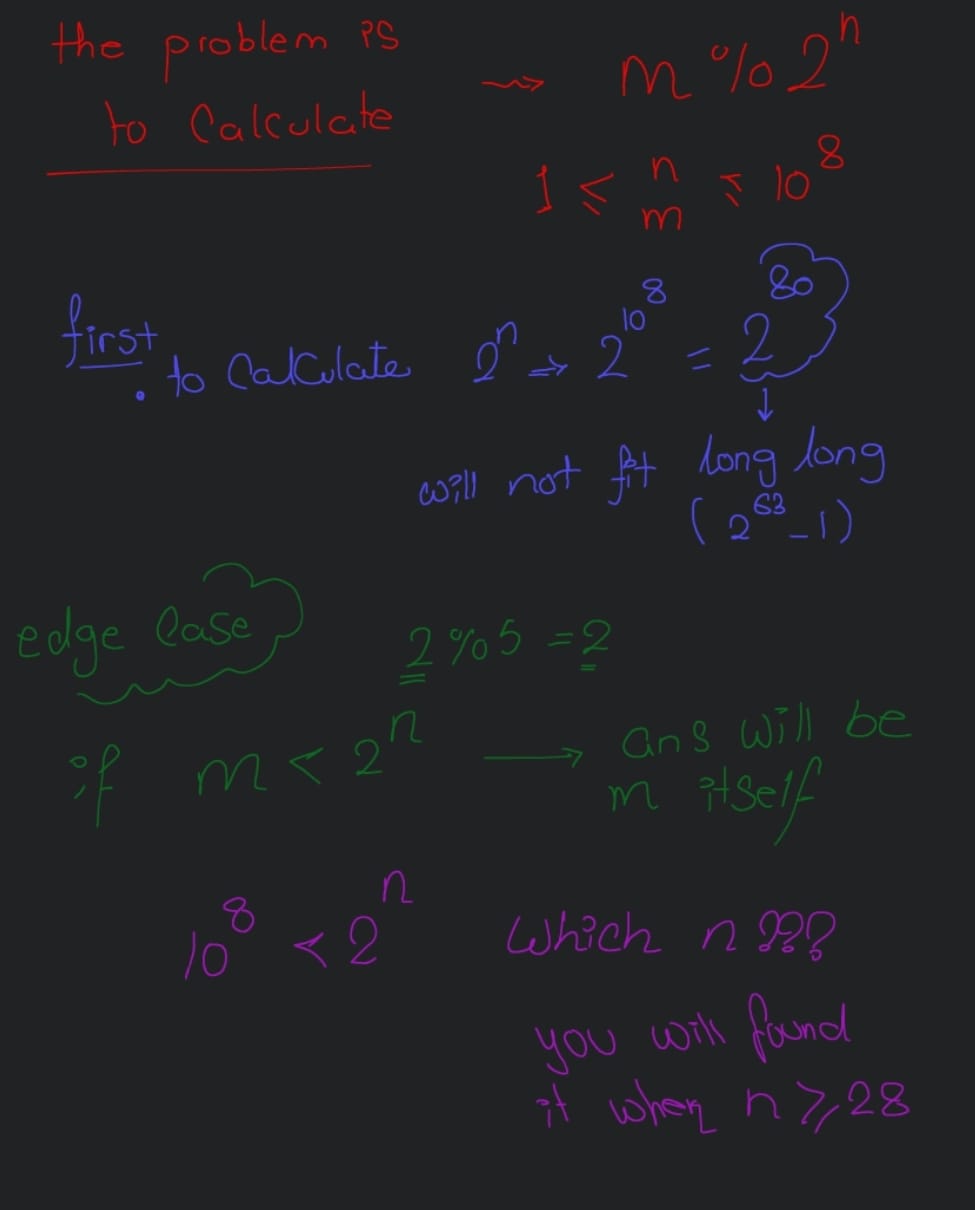 the problem is
to Calculate ⇝ m % 2^n
1 ≤ n m ≤ 10^8
first. to Calculate 2^n ⇒ 2^10^8 = 2^80
↓
will not fit long long
(2^63 - 1)
edge Case
2 % 5 = 2
if m < 2^n → ans will be
m itself
10^8 < 2^n which n ???
you will found
it when n ≥ 28